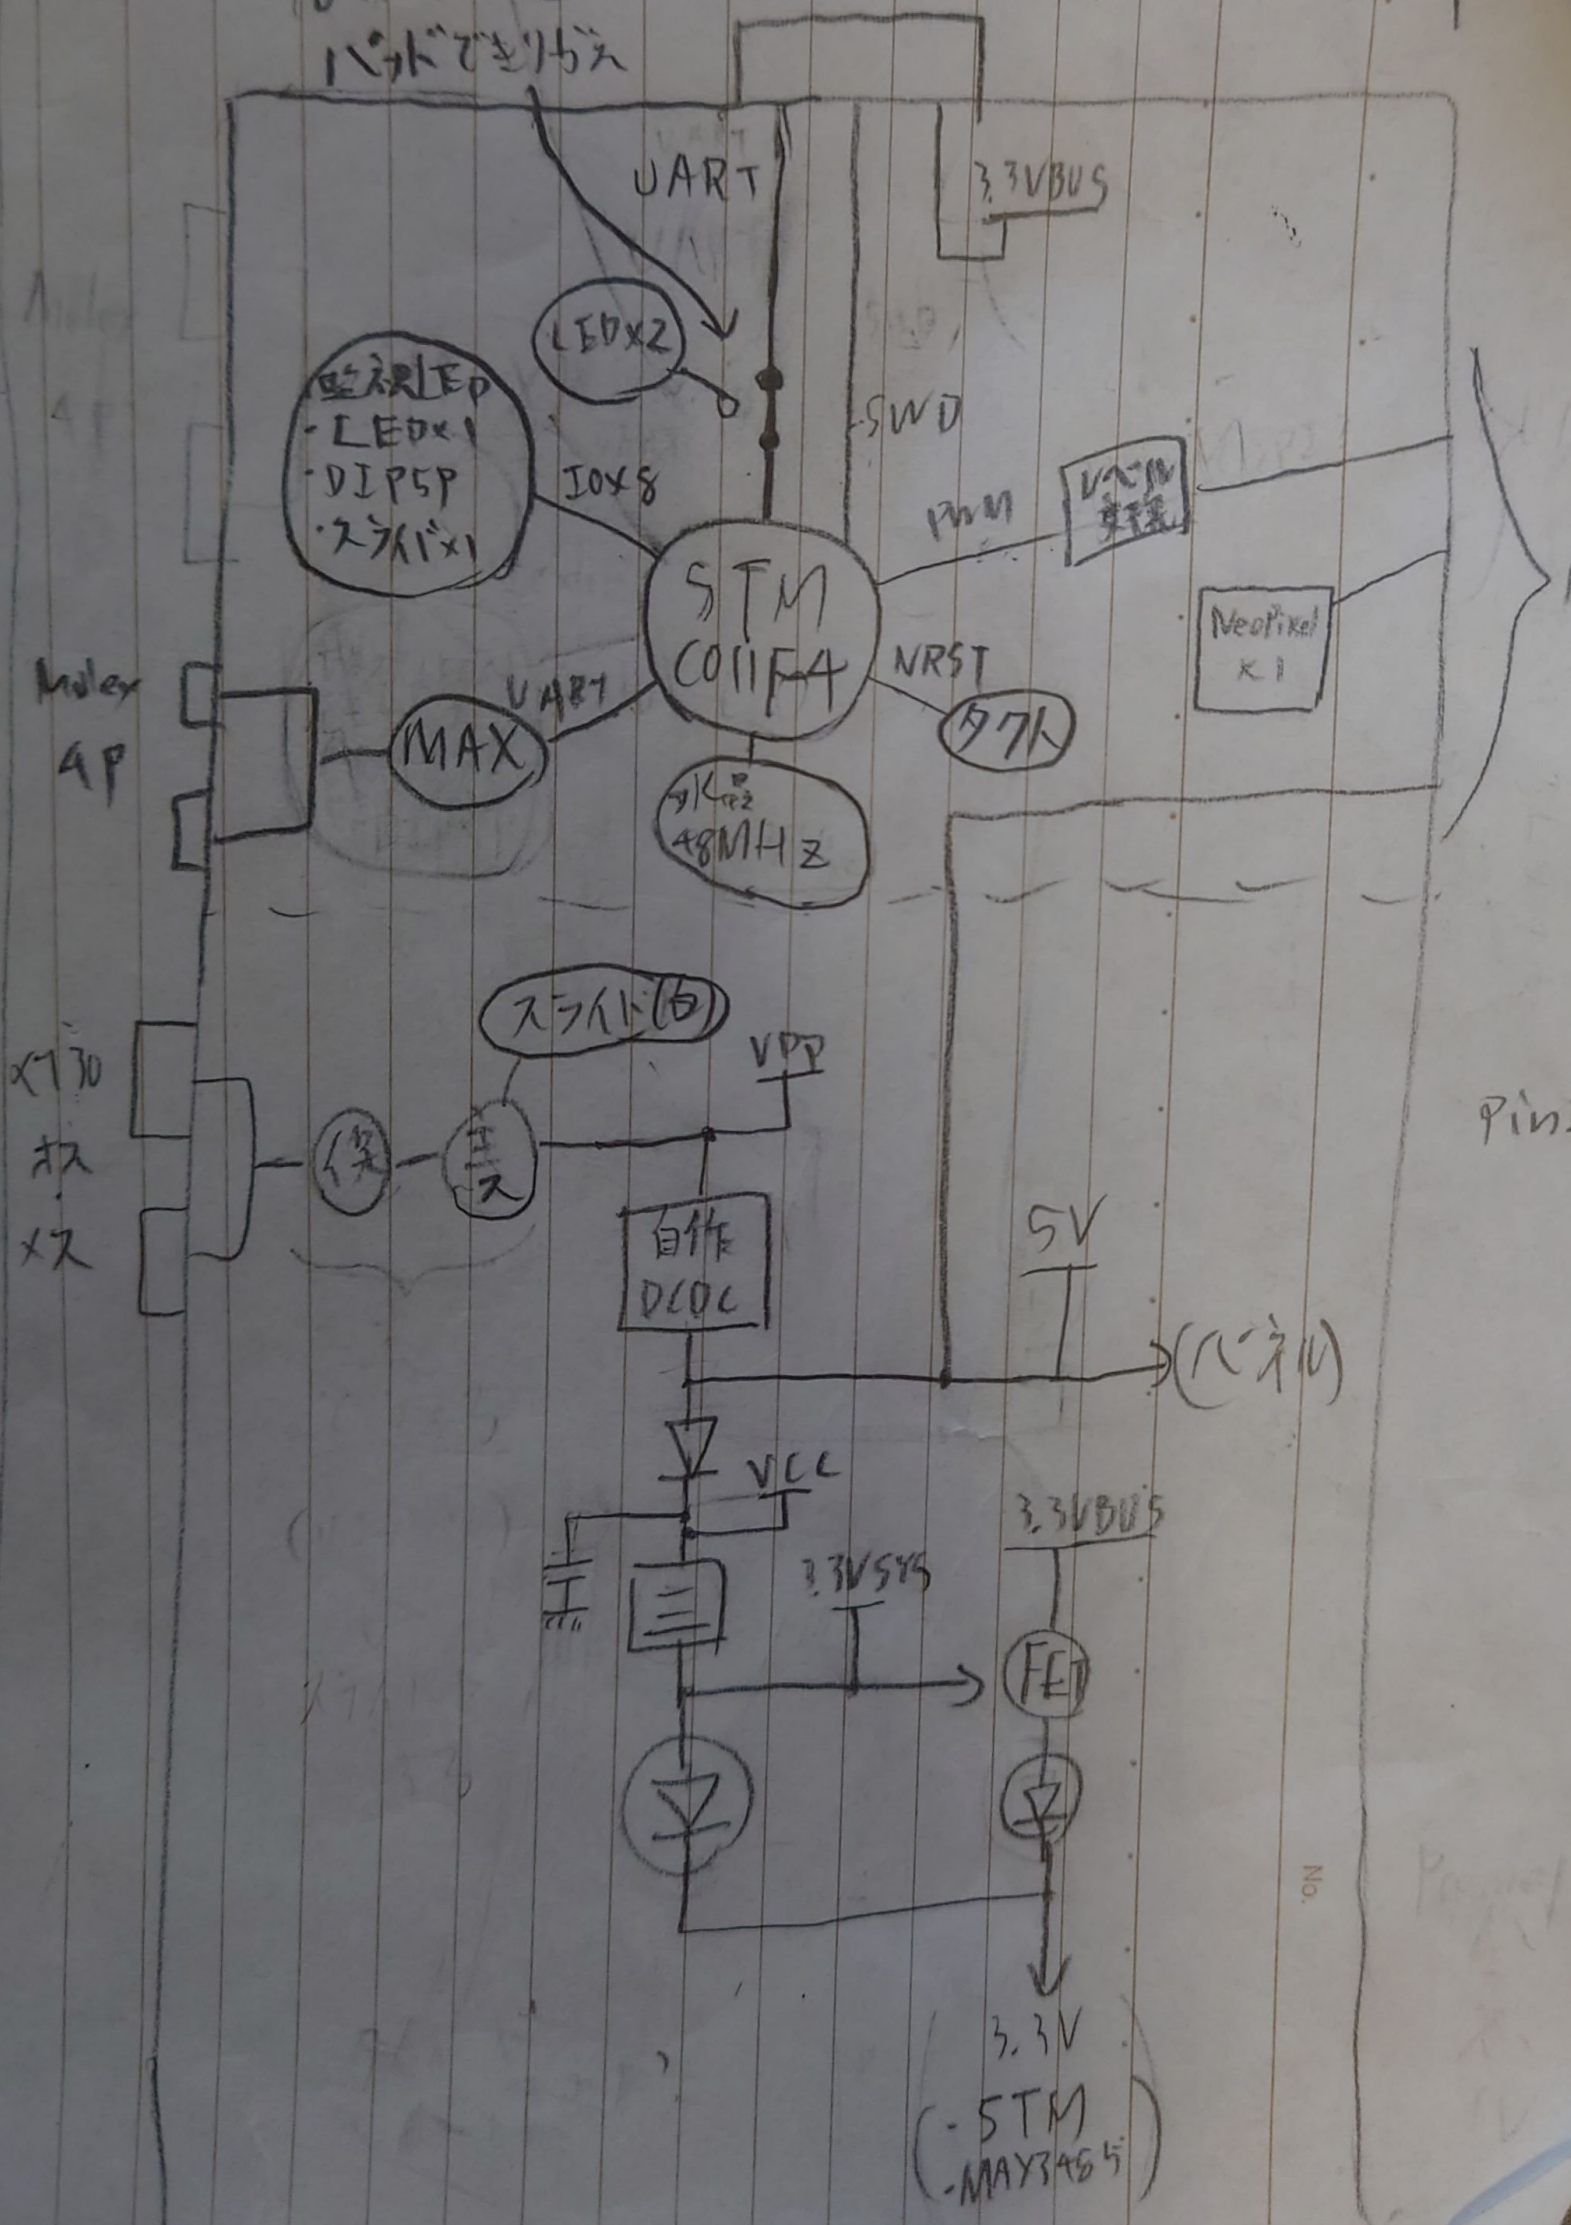 パッドできりかえ
UART
3.3VBUS
LED×2
監視LED
・LED×1
・DIP5P
・スライド×1
IO×8
SWD
PWM
レベル
変換
STM
C011F4
NRST
タクト
NeoPixel
×1
Molex
4P
MAX
UART
水晶
48MHz
スライド(白)
VPP
XT30
オス
・
メス
保
エス
自作
DCDC
5V
(パネル)
Pin
VCC
3.3VSYS
3.3VBUS
三
FET
No.
3.3V
・STM
・MAX3485